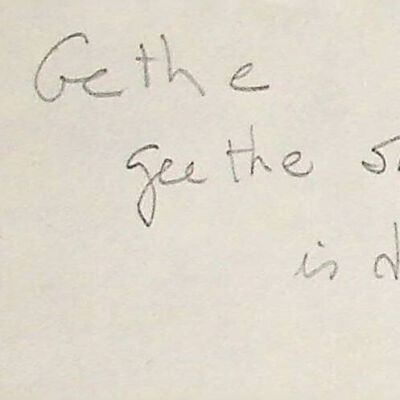 Gethe
gee the
is